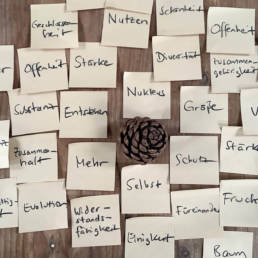 Geschlossen-
heit
Nutzen
Schönheit
Offenheit
Offenheit
Stärke
Diversität
zusammen-
gehörigkeit
Nukleus
Substanz
Entstehen
Größe
Zusammen-
halt
Mehr
Schutz
Stärke
Selbst
Evolution
Wider-
stands-
fähigkeit
Füreinander
Frucht
Einigkeit
Baum